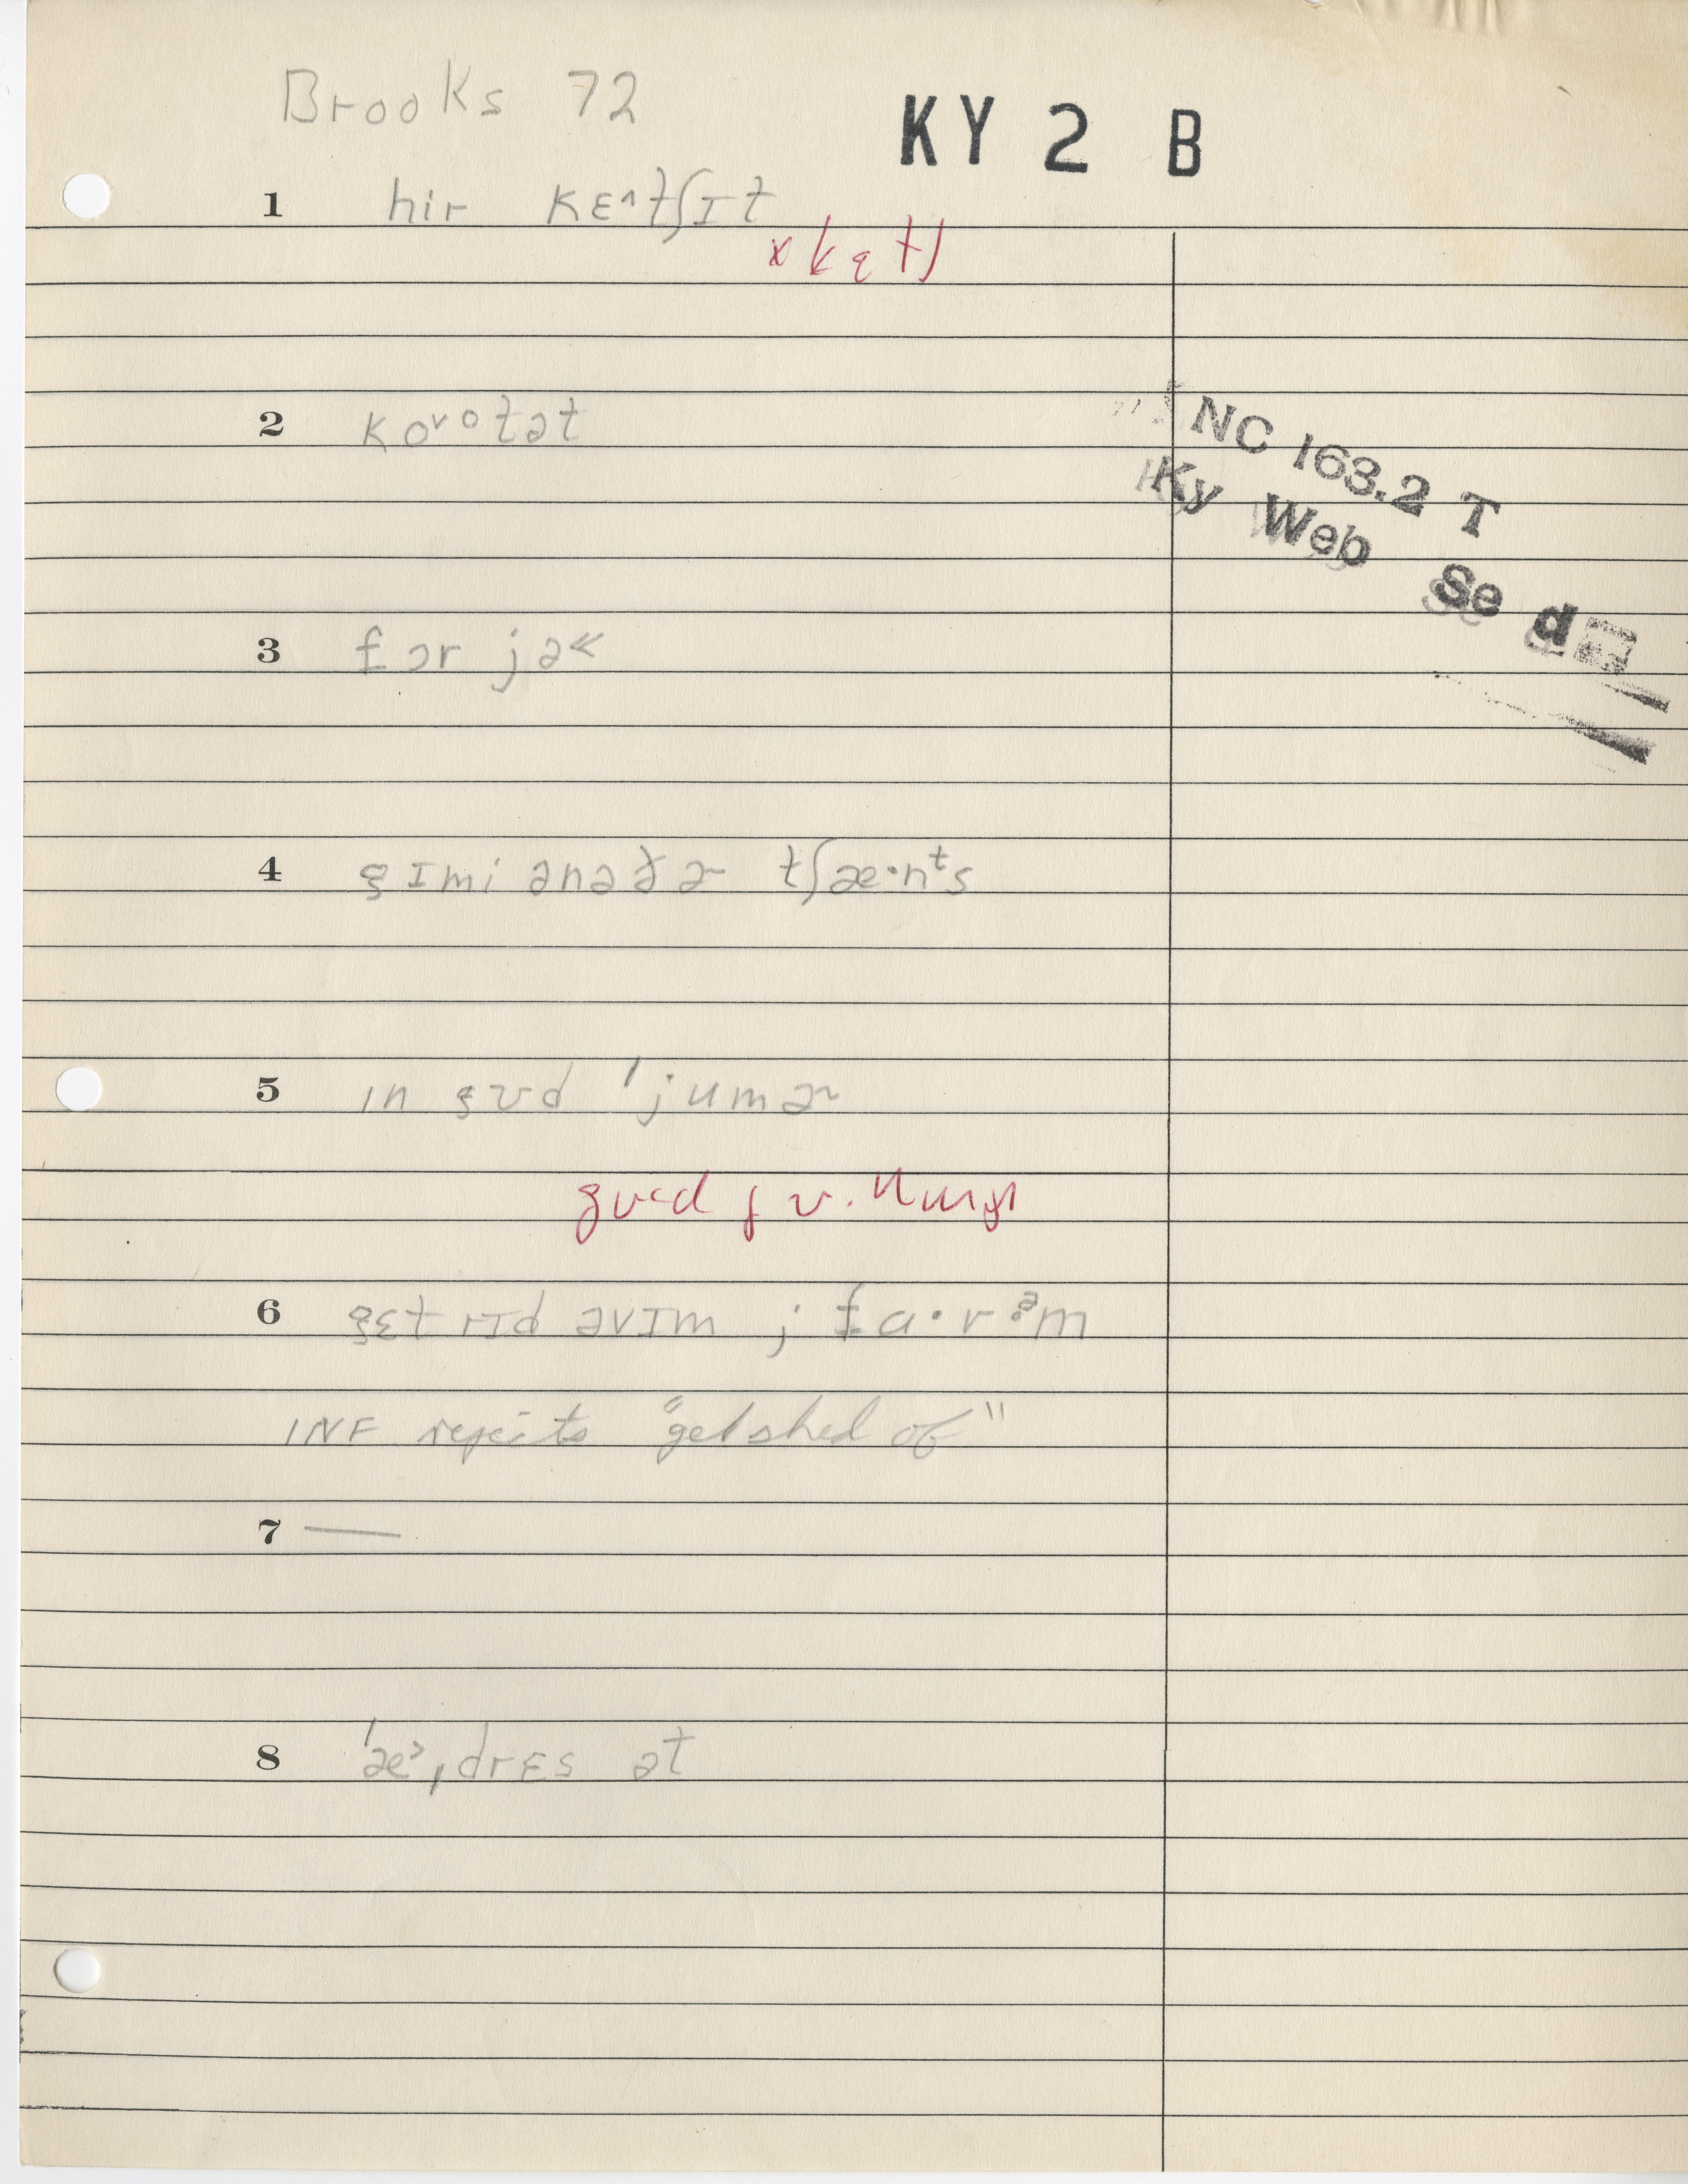 Brooks 72
KY 2 B
1 hir kɛ^tʃɪt
x kɛtʃ
2 koᵛotət
NC 163.2 T
Ky Web Se d
3 fɔr jə<<
4 gɪmi ənəðɚ tʃæ·nᵗs
5 ɪn gʊd 'jumɚ
6 gɛt rɪd əvɪm ; fa·rᵊm
INF rejects "get shed of"
7 —
8 'æ>ˌdrɛs ət